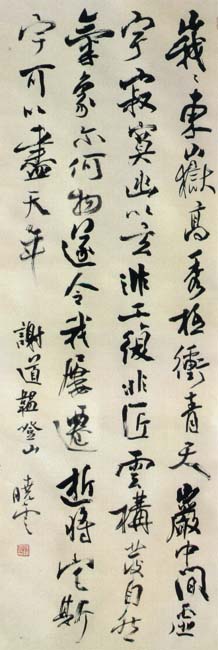 峩々東山嶽高秀極衝青天巖中間虛
宇寂寞幽以玄非工復非匠雲構發自然
氣象尓何物遂令我屢遷逝將宅斯
宇可以盡天年
謝道韞登山 曉雲